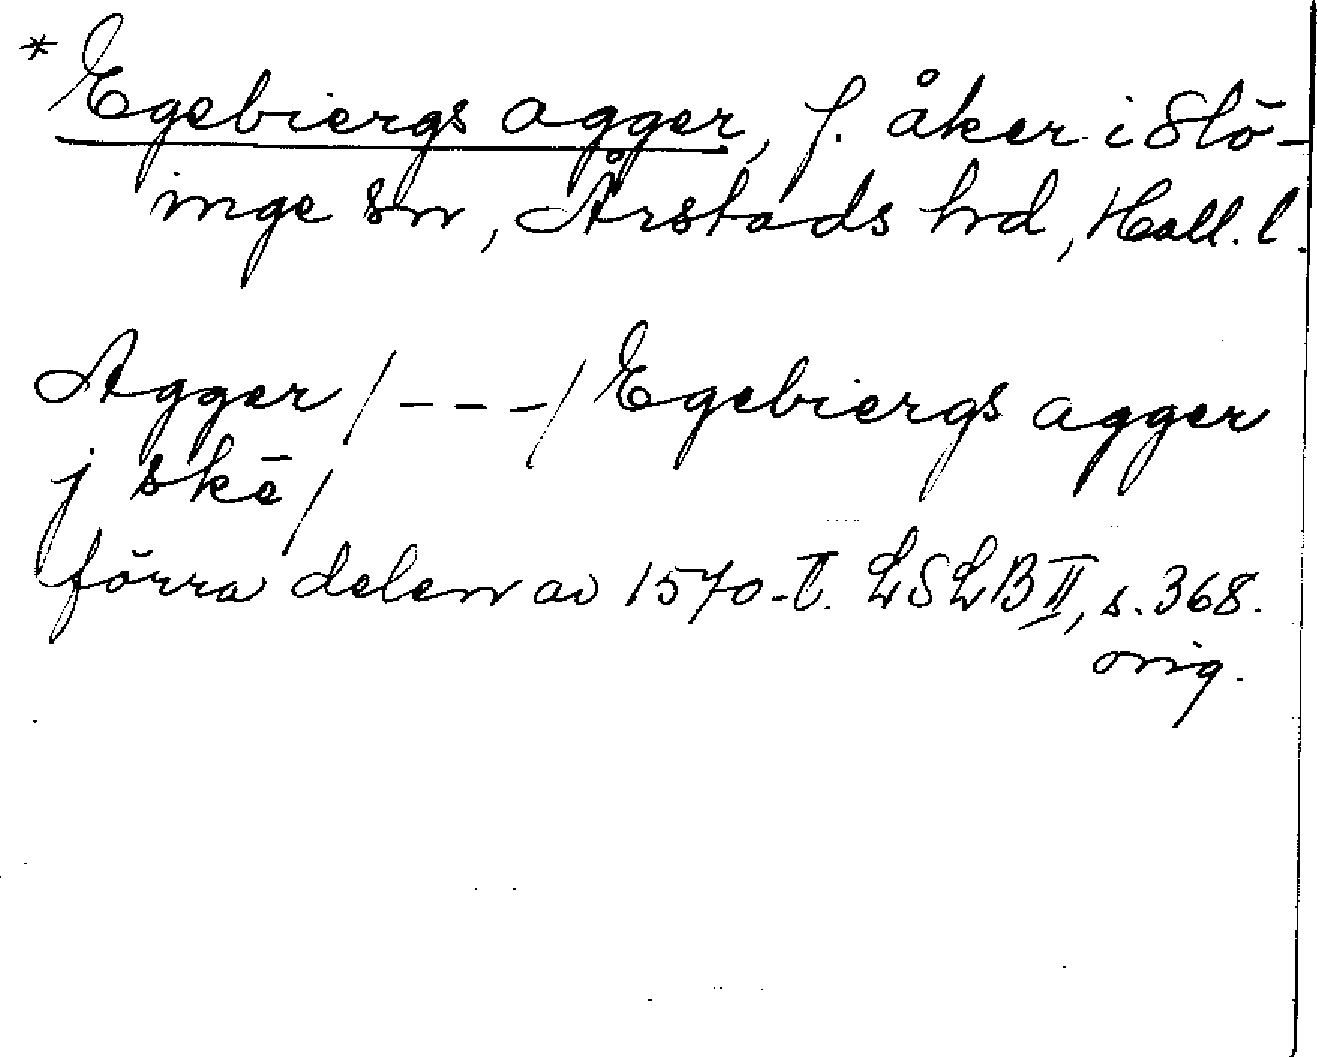 * Egebiergs agger, f. åker i Slö-
inge sn, Årstads hd, Hall. l.
Agger / - - - / Egebiergs agger
j skē /
förra delen av 1570-t. LSLB II, s. 368.
orig.